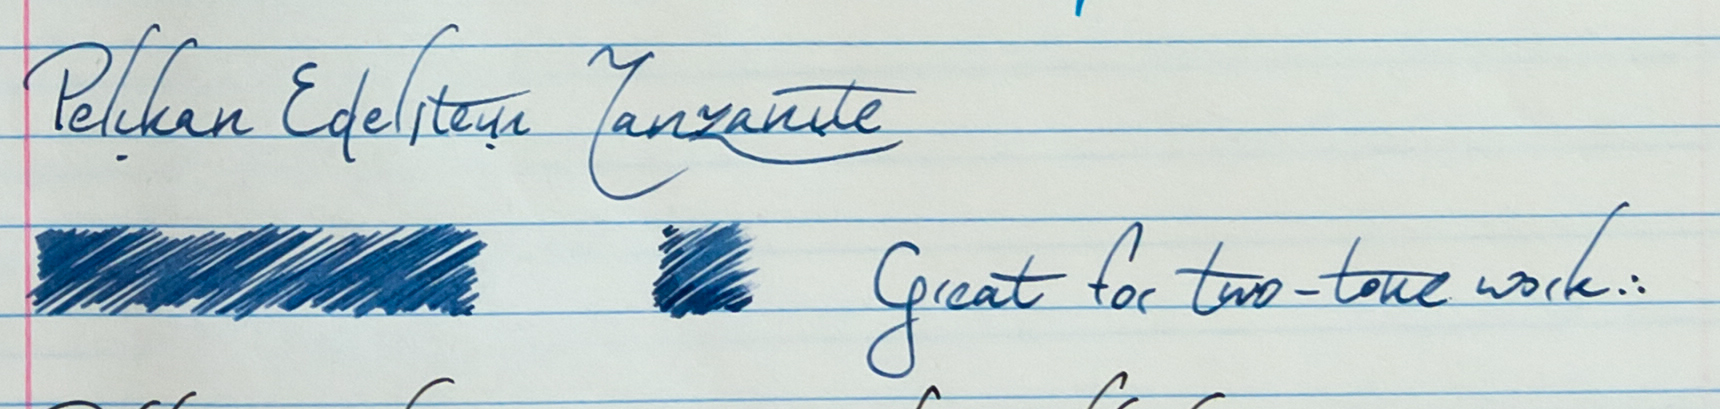 Pelikan Edelstein Tanzanite
Great for two-tone work∴